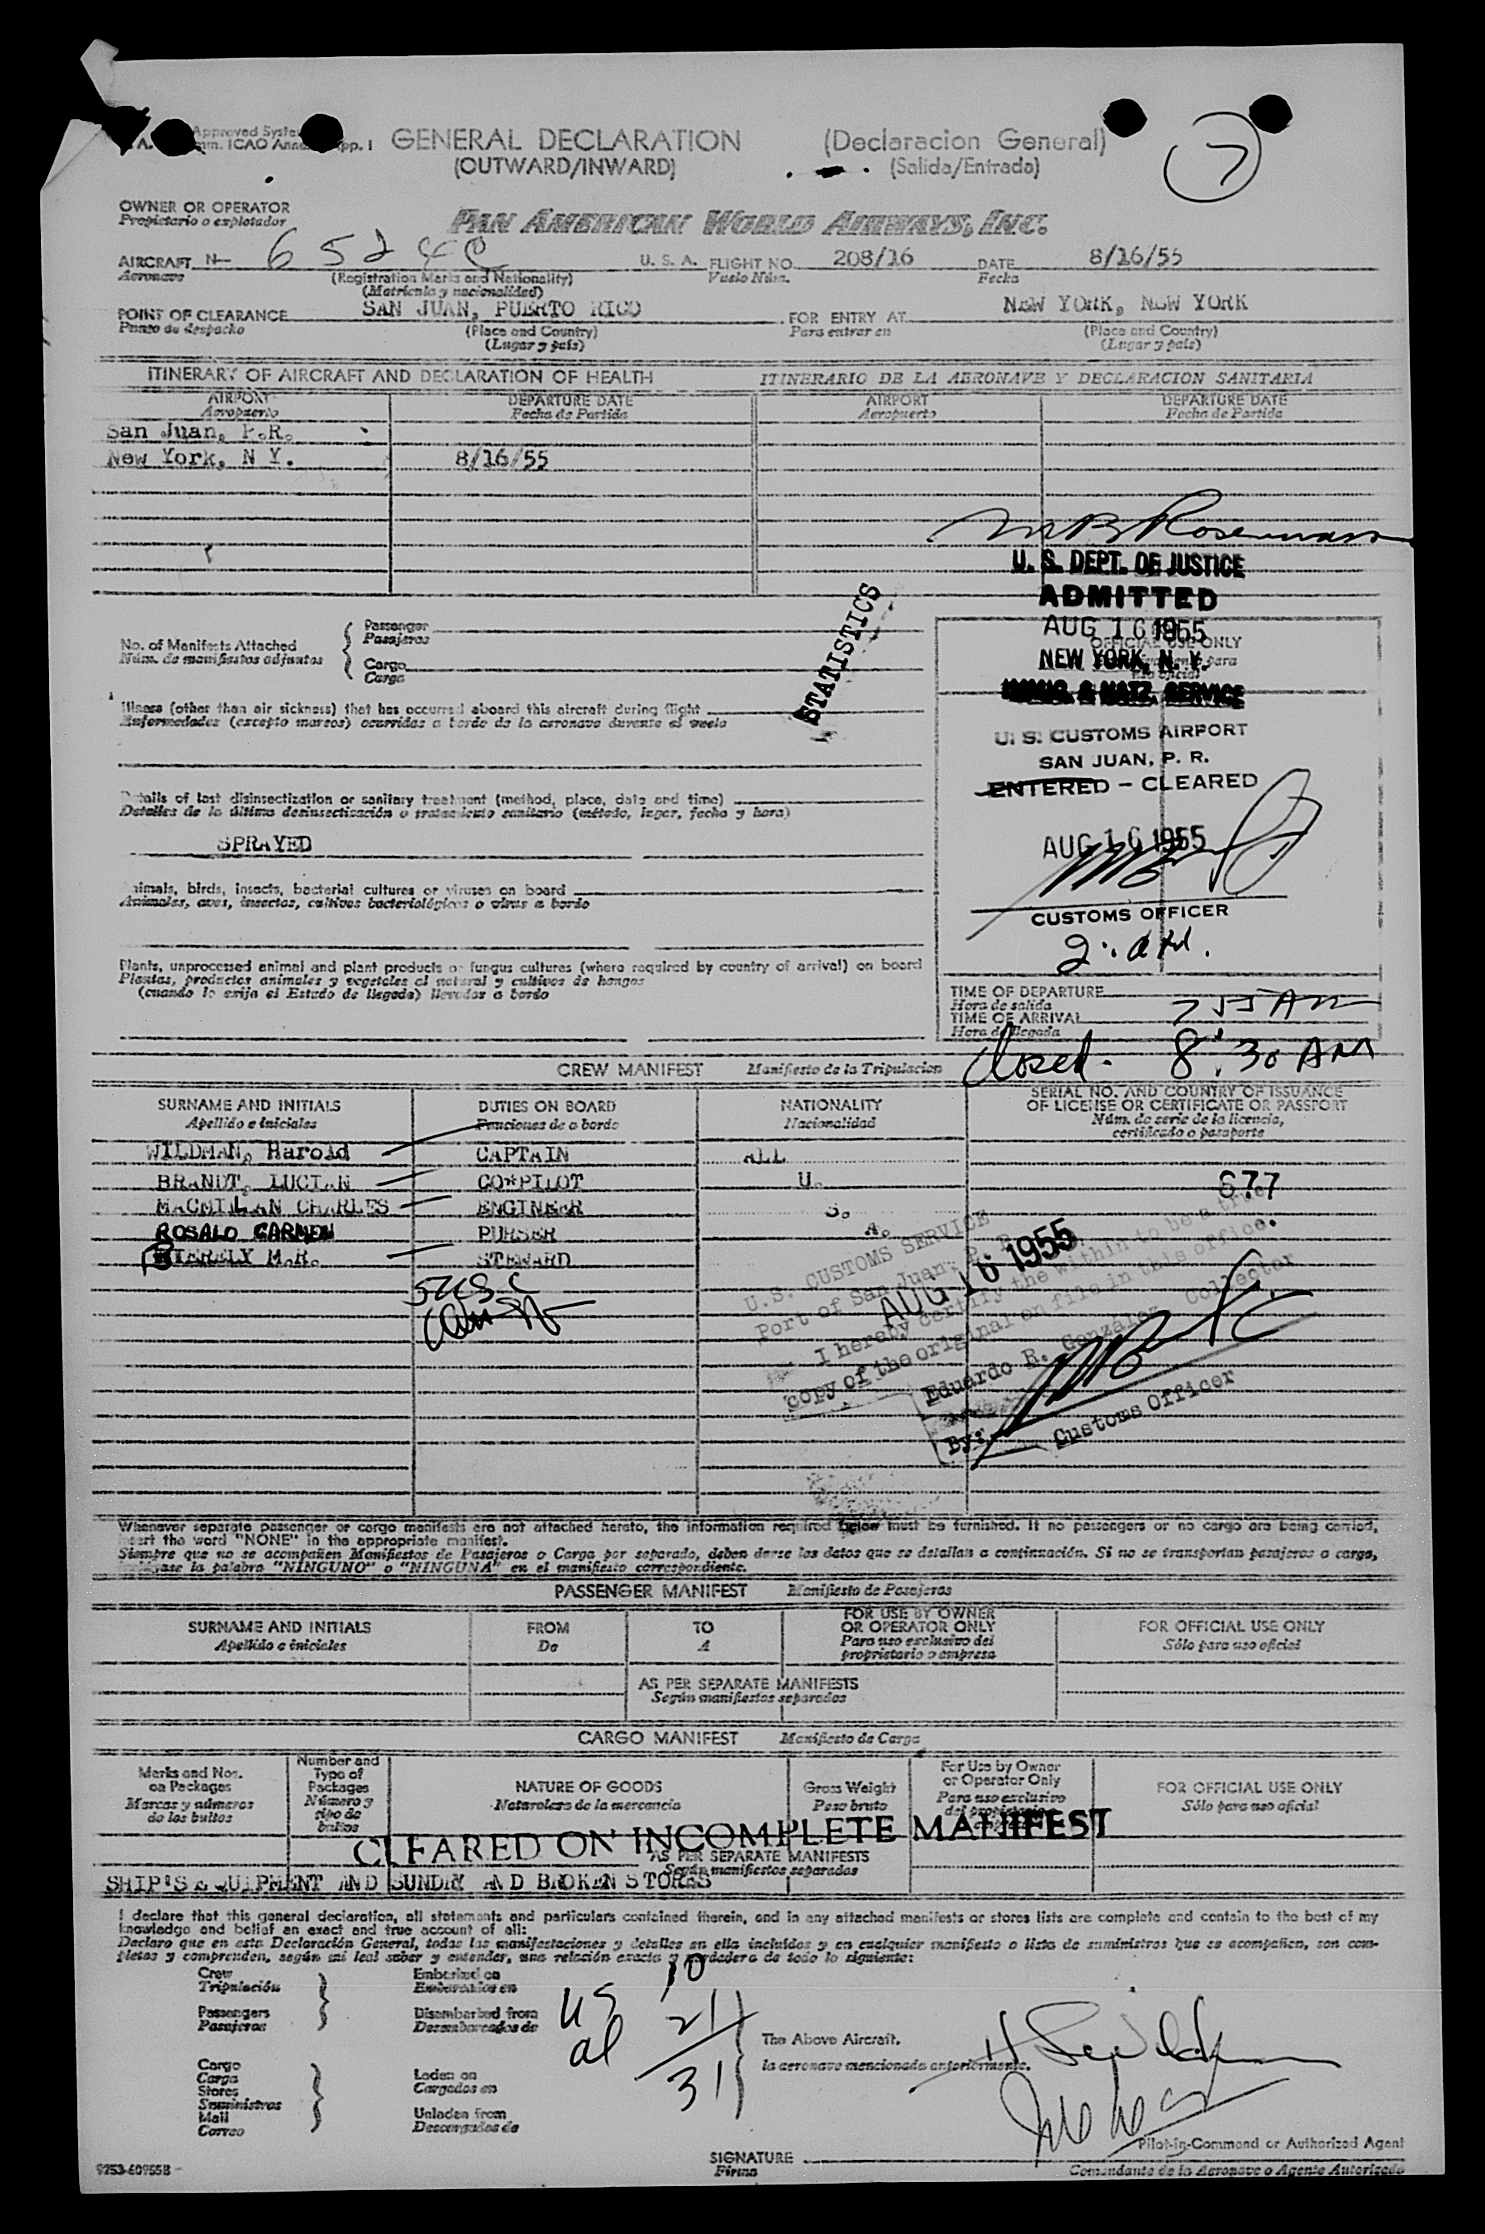 Approved System
ICAO Annex App. 1
GENERAL DECLARATION (Declaracion General)
(OUTWARD/INWARD) (Salida/Entrada)
7
OWNER OR OPERATOR
Propietario o explotador
PAN AMERICAN WORLD AIRWAYS, INC.
AIRCRAFT N- 6524C U. S. A. FLIGHT NO. 208/16 DATE 8/16/55
Aeronave (Registration Marks and Nationality) Vuelo Núm. Fecha
(Matrícula y nacionalidad)
POINT OF CLEARANCE SAN JUAN, PUERTO RICO FOR ENTRY AT NEW YORK, NEW YORK
Punto de despacho (Place and Country) Para entrar en (Place and Country)
(Lugar y país) (Lugar y país)
ITINERARY OF AIRCRAFT AND DECLARATION OF HEALTH ITINERARIO DE LA AERONAVE Y DECLARACION SANITARIA
AIRPORT DEPARTURE DATE AIRPORT DEPARTURE DATE
Aeropuerto Fecha de Partida Aeropuerto Fecha de Partida
San Juan, P.R.
New York, N Y. 8/16/55
U. S. DEPT. OF JUSTICE
ADMITTED
AUG 16 1955
NEW YORK, N. Y.
IMMIG. & NATZ. SERVICE
STATISTICS
OFFICIAL USE ONLY
No. of Manifests Attached
Núm. de manifiestos adjuntos
Passenger
Pasajeros
Cargo
Carga
Illness (other than air sickness) that has occurred aboard this aircraft during flight
Enfermedades (excepto mareos) ocurridas a bordo de la aeronave durante el vuelo
U. S. CUSTOMS AIRPORT
SAN JUAN, P. R.
ENTERED - CLEARED
AUG 16 1955
CUSTOMS OFFICER
Details of last disinsectization or sanitary treatment (method, place, date and time)
Detalles de la última desinsectización o tratamiento sanitario (método, lugar, fecha y hora)
SPRAYED
Animals, birds, insects, bacterial cultures or viruses on board
Animales, aves, insectos, cultivos bacteriológicos o virus a bordo
Plants, unprocessed animal and plant products or fungus cultures (where required by country of arrival) on board
Plantas, productos animales y vegetales al natural y cultivos de hongos
(cuando lo exija el Estado de llegada) llevados a bordo
TIME OF DEPARTURE 755 AM
Hora de salida
TIME OF ARRIVAL
Hora de llegada
Closed. 8:30 AM
CREW MANIFEST Manifiesto de la Tripulacion
SURNAME AND INITIALS DUTIES ON BOARD NATIONALITY SERIAL NO. AND COUNTRY OF ISSUANCE
OF LICENSE OR CERTIFICATE OR PASSPORT
Apellido e iniciales Funciones de a bordo Nacionalidad Núm. de serie de la licencia,
certificado o pasaporte
WILDMAN, Harold CAPTAIN ALL
BRANDT, LUCIAN CO-PILOT U. 677
MACMILLAN CHARLES ENGINEER S.
ROSALO CARMEN PURSER A.
BIERELY M.R. STEWARD
U.S. CUSTOMS SERVICE
Port of San Juan, P. R.
AUG 16 1955
I hereby certify the within to be a true
copy of the original on file in this office.
Eduardo R. Gonzalez Collector
By:
Customs Officer
Whenever separate passenger or cargo manifests are not attached hereto, the information required below must be furnished. If no passengers or no cargo are being carried,
insert the word "NONE" in the appropriate manifest.
Siempre que no se acompañen Manifiestos de Pasajeros o Carga por separado, deben darse los datos que se detallan a continuación. Si no se transportan pasajeros o carga,
la palabra "NINGUNO" o "NINGUNA" en el manifiesto correspondiente.
PASSENGER MANIFEST Manifiesto de Pasajeros
SURNAME AND INITIALS FROM TO FOR USE BY OWNER
OR OPERATOR ONLY FOR OFFICIAL USE ONLY
Apellido e iniciales De A Para uso exclusivo del
propietario o empresa Sólo para uso oficial
AS PER SEPARATE MANIFESTS
Según manifiestos separados
CARGO MANIFEST Manifiesto de Carga
Marks and Nos.
on Packages
Marcas y números
de los bultos
Number and
Type of
Packages
Número y
tipo de
bultos
NATURE OF GOODS
Naturaleza de la mercancía
Gross Weight
Peso bruto
For Use by Owner
or Operator Only
Para uso exclusivo
del propietario
FOR OFFICIAL USE ONLY
Sólo para uso oficial
CLEARED ON INCOMPLETE MANIFEST
AS PER SEPARATE MANIFESTS
Según manifiestos separados
SHIP'S EQUIPMENT AND SUNDRY AND BROKEN STORES
I declare that this general declaration, all statements and particulars contained therein, and in any attached manifests or stores lists are complete and contain to the best of my
knowledge and belief an exact and true account of all:
Declaro que en esta Declaración General, todas las manifestaciones y detalles en ella incluidos y en cualquier manifiesto o lista de suministros que se acompañen, son com-
pletos y comprenden, según mi leal saber y entender, una relación exacta y verdadera de todo lo siguiente:
Crew
Tripulación
Passengers
Pasajeros
Embarked on
Embarcados en
Disembarked from
Desembarcados de
US 10
al 21
31
The Above Aircraft.
la aeronave mencionada anteriormente.
Cargo
Carga
Stores
Suministros
Mail
Correo
Laden on
Cargados en
Unladen from
Descargados de
SIGNATURE
Firma
Pilot-in-Command or Authorized Agent
Comandante de la Aeronave o Agente Autorizado